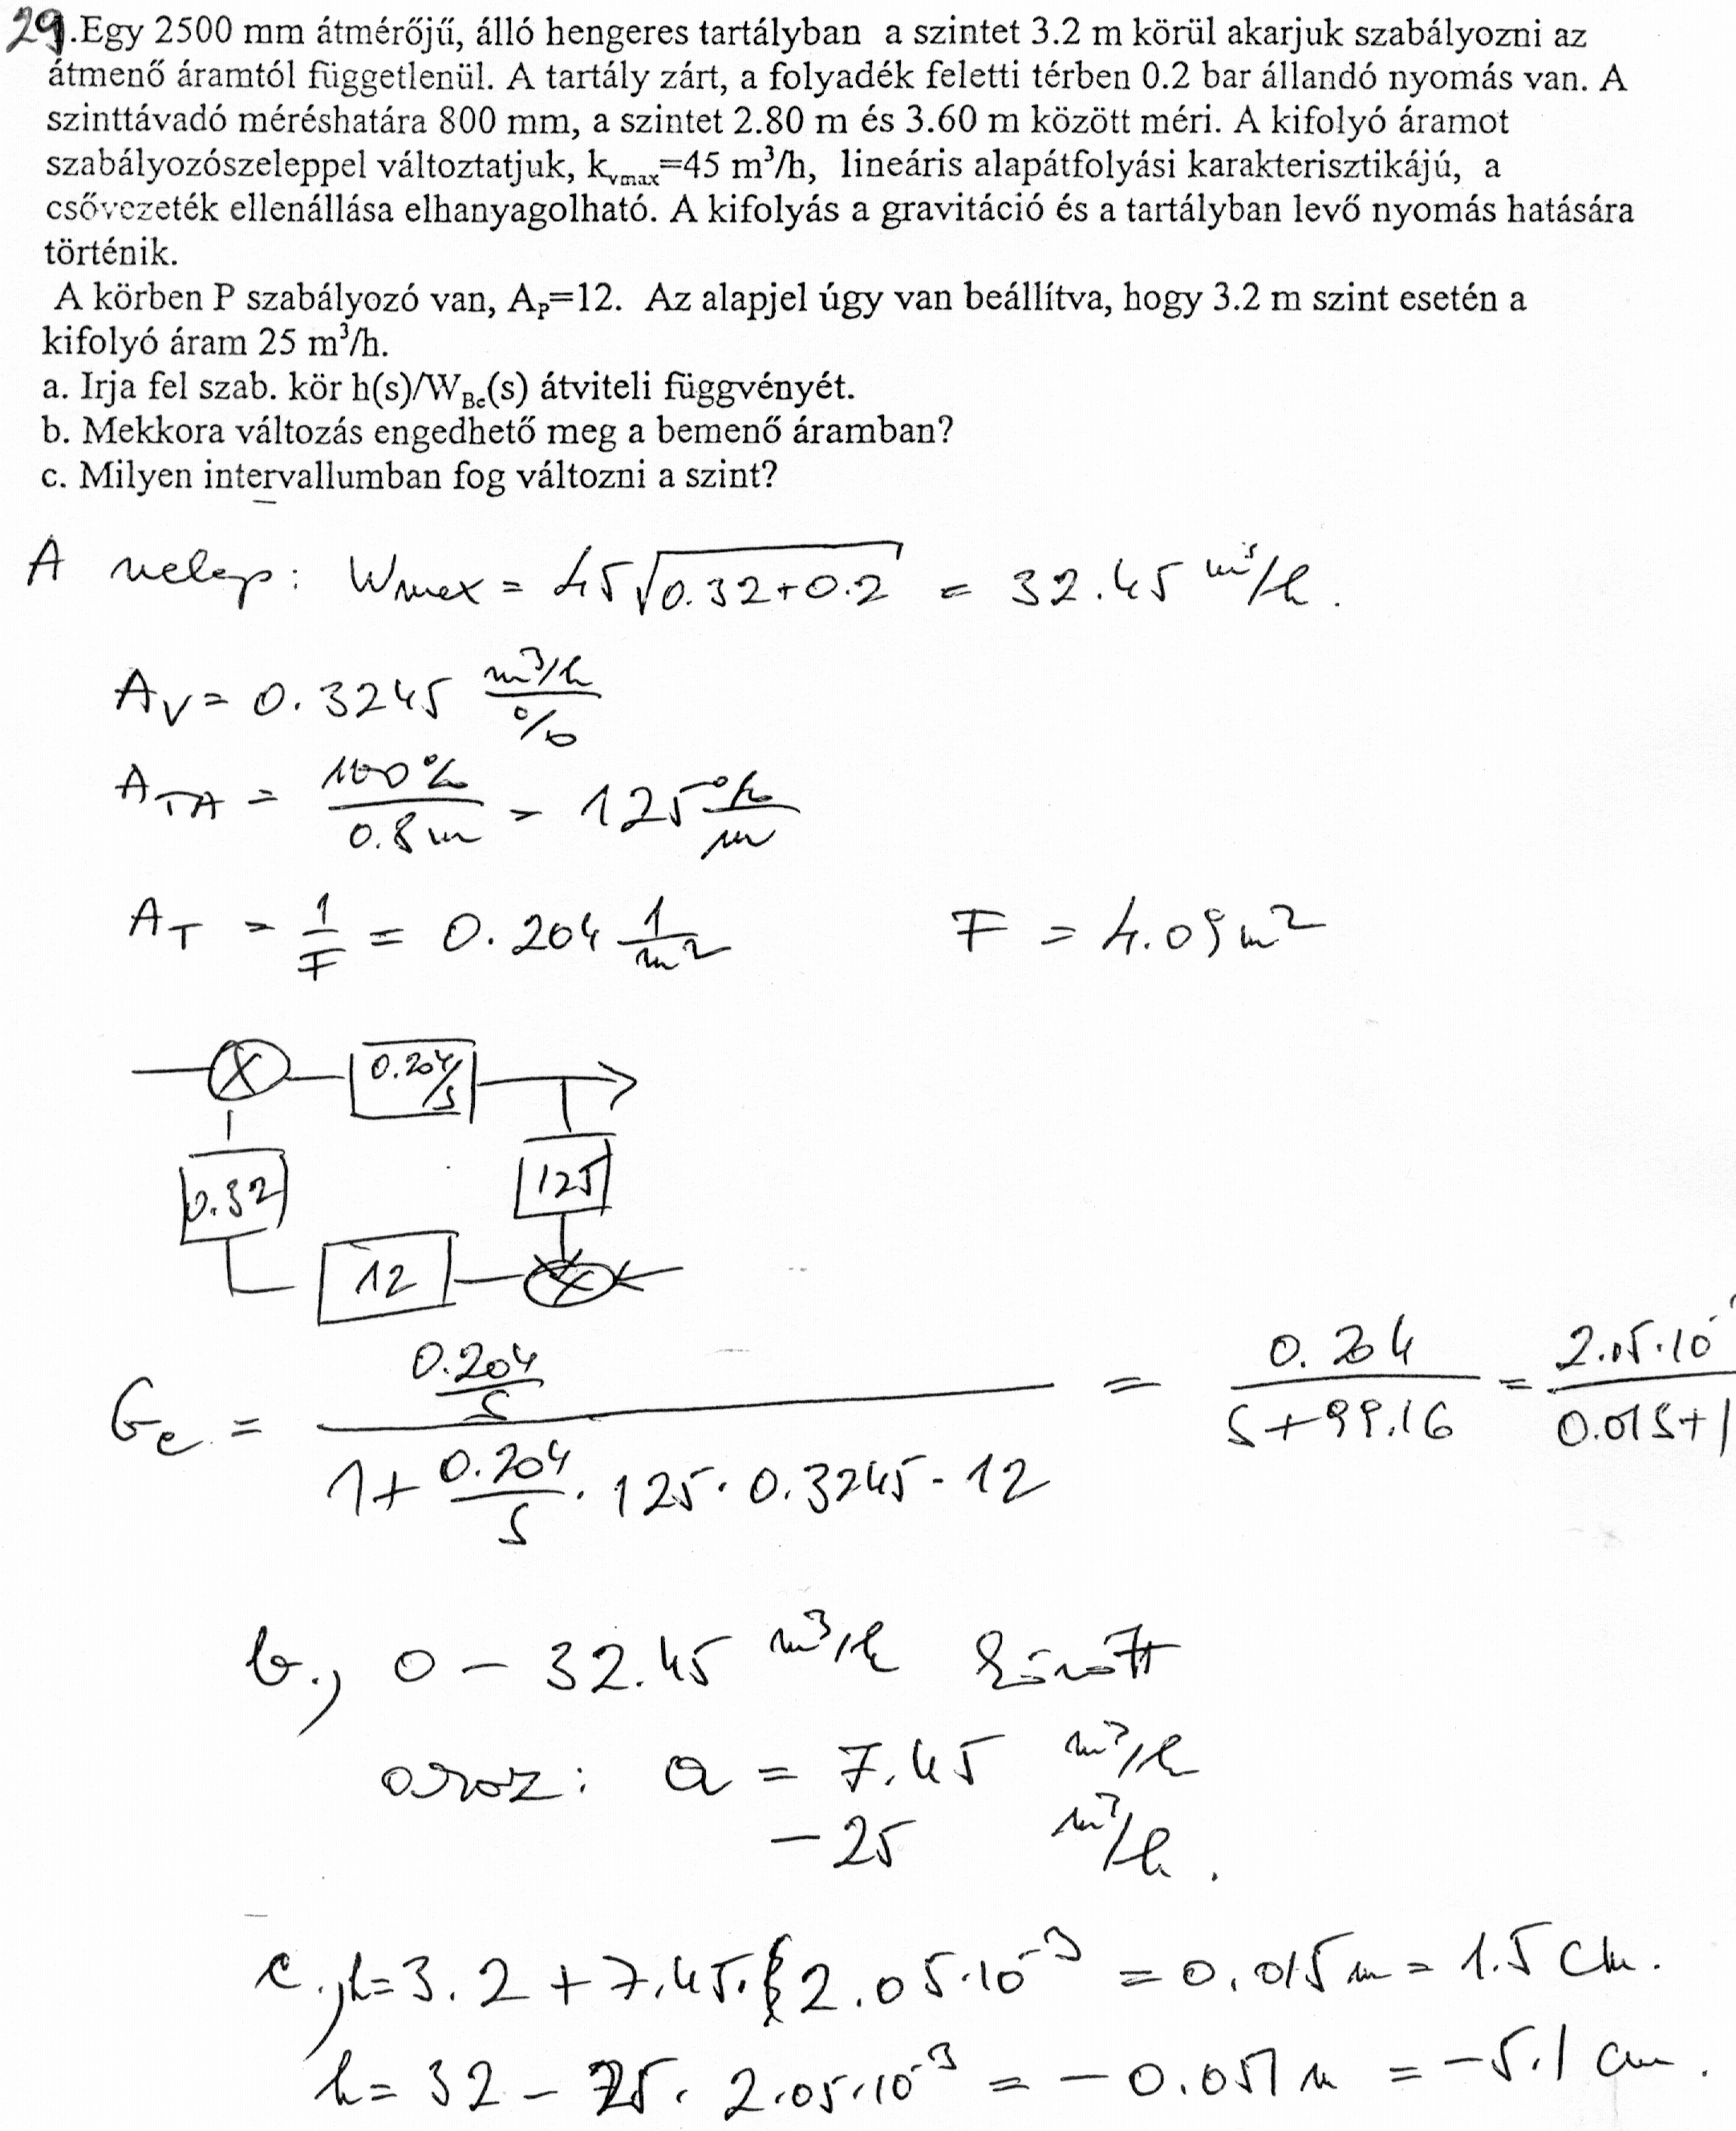 29.Egy 2500 mm átmérőjű, álló hengeres tartályban a szintet 3.2 m körül akarjuk szabályozni az
átmenő áramtól függetlenül. A tartály zárt, a folyadék feletti térben 0.2 bar állandó nyomás van. A
szinttávadó méréshatára 800 mm, a szintet 2.80 m és 3.60 m között méri. A kifolyó áramot
szabályozószeleppel változtatjuk, kvmax=45 m³/h, lineáris alapátfolyási karakterisztikájú, a
csővezeték ellenállása elhanyagolható. A kifolyás a gravitáció és a tartályban levő nyomás hatására
történik.
A körben P szabályozó van, AP=12. Az alapjel úgy van beállítva, hogy 3.2 m szint esetén a
kifolyó áram 25 m³/h.
a. Irja fel szab. kör h(s)/WBe(s) átviteli függvényét.
b. Mekkora változás engedhető meg a bemenő áramban?
c. Milyen intervallumban fog változni a szint?
A szelep: Wmax = 45√0.32+0.2 = 32.45 m³/h.
AV = 0.3245 m³/h / %
ATA = 100% / 0.8m = 125 % / m
AT = 1/F = 0.204 1/m² F = 4.09 m²
0.204/s
0.32 125
12
Ge = (0.204/s) / (1 + 0.204/s · 125 · 0.3245 · 12) = 0.204 / (s+99.16) = 2.05·10⁻ / (0.01s+1
b., 0 – 32.45 m³/h között
azaz: a = 7.45 m³/h
-25 m³/h.
c., h= 3.2 + 7.45· 2.05·10⁻³ = 0.015 m = 1.5 cm.
h = 32 – 25· 2.05·10⁻³ = -0.051 m = -5.1 cm.